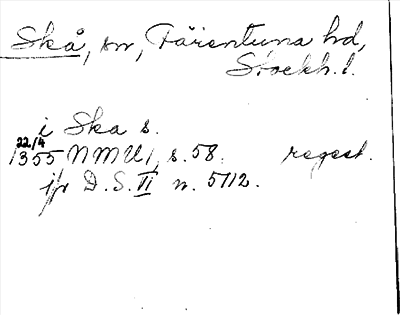 Skå, sn, Färentuna hd,
Stockh. l.
i Ska s.
22/4
1355 NMU 1, s. 58. regest.
jfr D. S. VI n. 5112.